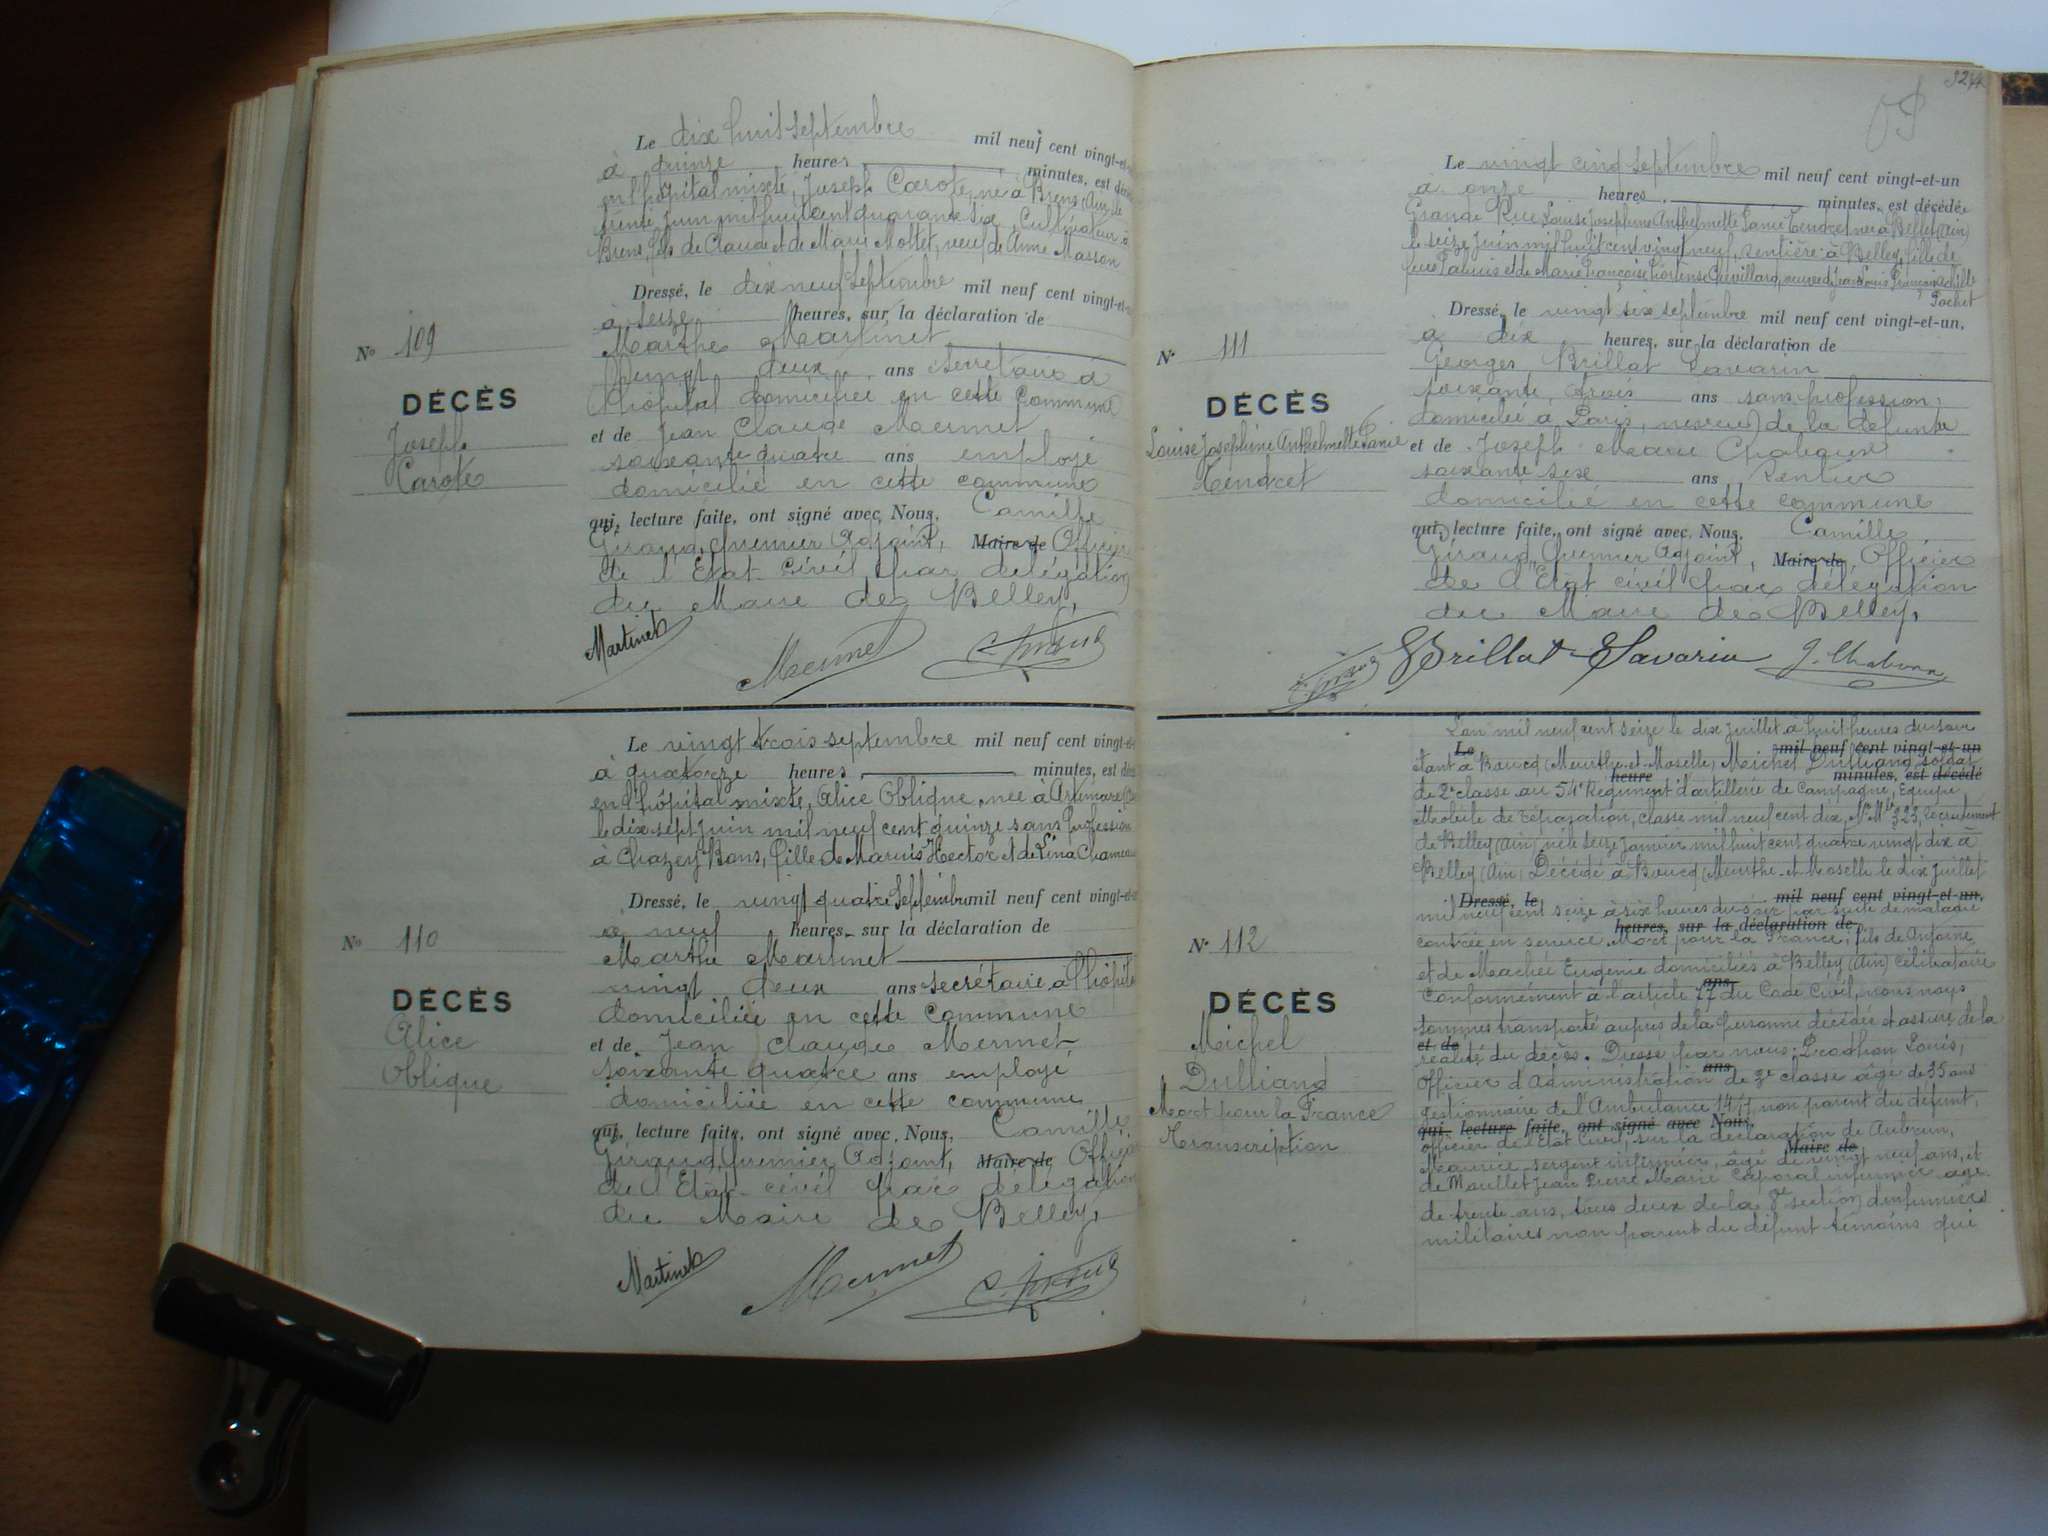 Le dix huit septembre mil neuf cent vingt-et-
à quinze heures minutes, est décé
en l'hôpital mixte, Joseph Carote, né à Brens (Ain) le
trente Juin mil huit cent quarante six, Cultivateur à
Brens, fils de Claude et de Marie Mollet, veuf de Anne Masson
Dressé, le dix neuf septembre mil neuf cent vingt-et-
à seize heures, sur la déclaration de
Marthe Martinet
vingt deux ans secrétaire à
l'hôpital domiciliée en cette commune
et de Jean Claude Mermet
soixante quatre ans employé
domicilié en cette commune
qui, lecture faite, ont signé avec Nous, Camille
Giraud, premier Adjoint, Maire de Officier
de l'Etat civil par délégation
du Maire de Belley,
Martinet Mermet C. Giraud
No 109
DÉCÈS
Joseph
Carote
Le vingt trois septembre mil neuf cent vingt-et-
à quatorze heures minutes, est décé
en l'hôpital mixte, Alice Oblique, née à Artemare
le dix sept juin mil neuf cent quinze sans profession
à Chazey Bons, fille de Marius Hector et de Lina
Dressé, le vingt quatre Septembre mil neuf cent vingt-et-
à neuf heures, sur la déclaration de
Marthe Martinet
vingt deux ans secrétaire à l'hôpital
domiciliée en cette commune
et de Jean Claude Mermet
soixante quatre ans employé
domiciliée en cette commune
qui, lecture faite, ont signé avec Nous, Camille
Giraud, premier Adjoint, Maire de Officier
de l'Etat civil par délégation
du Maire de Belley,
Martinet Mermet C. Giraud
No 110
DÉCÈS
Alice
Oblique
Le vingt cinq septembre mil neuf cent vingt-et-un
à onze heures minutes, est décédée
Grande Rue Louise Josephine Anthelmette Tendret née à Belley (Ain)
le seize Juin mil huit cent vingt neuf, rentière à Belley, fille de
feus et de Marie Françoise Hortense Chevillard, veuve de Jean Louis François
Pochet
Dressé, le vingt six septembre mil neuf cent vingt-et-un,
à dix heures, sur la déclaration de
Georges Brillat Savarin
soixante trois ans sans profession,
domicilié à Paris, neveu de la défunte
et de Joseph Marie
soixante six ans, Rentier
domicilié en cette commune
qui, lecture faite, ont signé avec Nous, Camille
Giraud, Premier Adjoint, Maire de Officier
de l'Etat civil par délégation
du Maire de Belley,
C. Giraud Brillat-Savarin
No 111
DÉCÈS
Louise Josephine Anthelmette
Tendret
L'an mil neuf cent seize le dix juillet à huit heures du soir
Le mil neuf cent vingt-et-un
étant à Boucq (Meurthe-et-Moselle) Michel Dulliand, soldat
heure minutes, est décédé
de 2e classe au 54e Régiment d'artillerie de Campagne, Equipe
Mobile de réparation, classe mil neuf cent dix, No Mle 323, recrutement
de Belley (Ain) né le seize janvier mil huit cent quatre vingt dix à
Belley (Ain) Décédé à Boucq (Meurthe-et-Moselle le dix juillet
Dressé, le mil neuf cent vingt-et-un,
mil neuf cent seize à six heures du soir par suite de maladie
heures, sur la déclaration de
contractée en service Mort pour la France, fils de Antoine
et de Machée Eugénie domiciliés à Belley (Ain) Célibataire
ans
Conformément à l'article 77 du Code Civil, nous nous
sommes transporté auprès de la personne décédée et assuré de la
et de
réalité du décès. Dressé par nous Louis,
ans
Officier d'Administration de 3e classe âgé de 35 ans
gestionnaire de l'Ambulance non parent du défunt,
qui lecture faite, ont signé avec Nous,
officier de l'Etat Civil, sur la déclaration de Aubrun,
Maire de
Maurice sergent infirmier, âgé de vingt neuf ans, et
de Jean Pierre Marie Caporal infirmier âgé
de trente ans, tous deux de la section d'infirmiers
militaires non parent du défunt témoins qui
No 112
DÉCÈS
Michel
Dulliand
Mort pour la France
Transcription